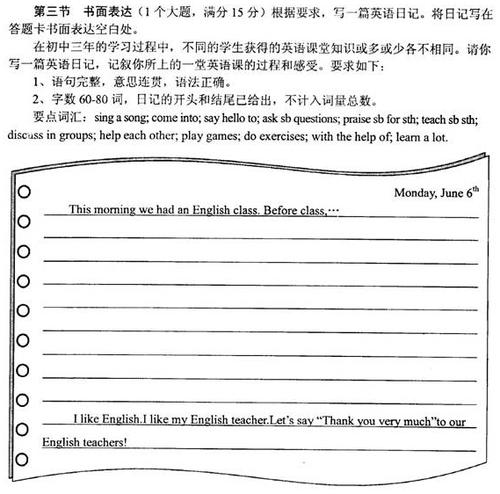 第三节 书面表达（1 个大题，满分 15 分）根据要求，写一篇英语日记。将日记写在
答题卡书面表达空白处。
在初中三年的学习过程中，不同的学生获得的英语课堂知识或多或少各不相同。请你
写一篇英语日记，记叙你所上的一堂英语课的过程和感受。要求如下：
1、语句完整，意思连贯，语法正确。
2、字数 60-80 词，日记的开头和结尾已给出，不计入词量总数。
要点词汇：sing a song; come into; say hello to; ask sb questions; praise sb for sth; teach sb sth;
discuss in groups; help each other; play games; do exercises; with the help of; learn a lot.
Monday, June 6th
This morning we had an English class. Before class,…
I like English.I like my English teacher.Let's say “Thank you very much”to our
English teachers!